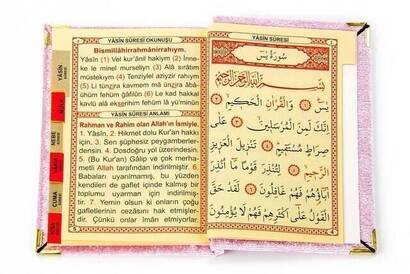 YÂSÎN SÛRESİ OKUNUŞU
Bismillâhirrahmânirrahıym.
Yâsîn (1) Vel kur'ânil hakiym (2) İnne-
ke le minel murseliyn (3) Alâ sırâtım
müstekıym (4) Tenziylel aziyzir rahıym
(5) Li tünzira kavmem mâ ünzira âbâ-
ühüm fehüm ğâfilûn (6) Le kad hakkal
kavlü alâ ekserihim fehüm lâ yü'minûn
YÂSÎN SÛRESİ ANLAMI
Rahman ve Rahim olan Allah'ın İsmiyle.
1. Yâsîn, 2. Hikmet dolu Kur'an hakkı
için, 3. Sen şüphesiz peygamberler-
densin. 4. Dosdoğru yol üzerindesin.
5. (Bu Kur'an) Gâlip ve çok merha-
metli Allah tarafından indirilmiştir. 6.
Babaları uyarılmamış, bu yüzden
kendileri de gaflet içinde kalmış bir
toplumu uyarman için indirilmiş-
tir. 7. Yemin olsun ki onların çoğu
gafletlerinin cezasını hak etmişler-
dir. Çünkü onlar îman etmiyorlar.
YÂSÎN
NEBE
CUMA
YÂSÎN SÛRESİ
سُورَةُ يٰسٓ
بِسْمِ اللهِ الرَّحْمٰنِ الرَّحِيمِ
يٰسٓ ﴿١﴾ وَالْقُرْاٰنِ الْحَكِيمِ ﴿٢﴾
اِنَّكَ لَمِنَ الْمُرْسَلِينَ ﴿٣﴾ عَلٰى
صِرَاطٍ مُسْتَقِيمٍ ﴿٤﴾ تَنْزِيلَ الْعَزِيزِ
الرَّحِيمِ ﴿٥﴾ لِتُنْذِرَ قَوْمًا مَٓا اُنْذِرَ
اٰبَٓاؤُهُمْ فَهُمْ غَافِلُونَ ﴿٦﴾ لَقَدْ حَقَّ
الْقَوْلُ عَلٰٓى اَكْثَرِهِمْ فَهُمْ لَا يُؤْمِنُونَ